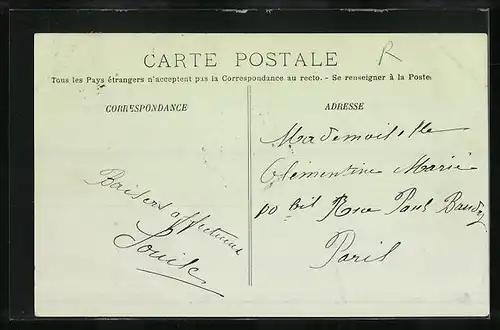 R
CARTE POSTALE
Tous les Pays étrangers n'acceptent pas la Correspondance au recto. - Se renseigner à la Poste.
CORRESPONDANCE
Baisers affectueux
Louise
ADRESSE
Mademoiselle
Clémentine Marie
bis Rue Paul Baudry
Paris